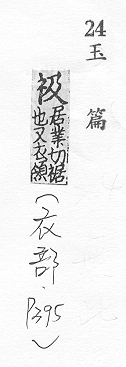 24 玉篇
衱
居業切裾
也又衣領
(衣部·P395)